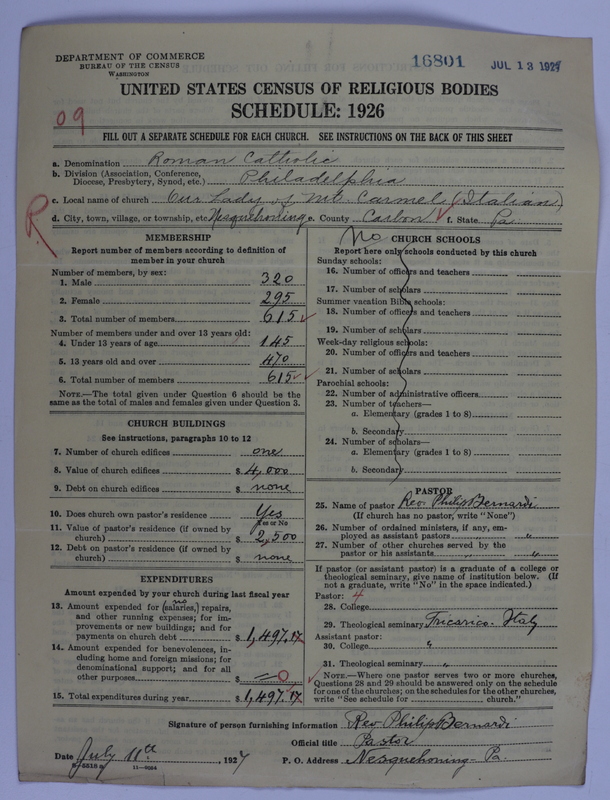 DEPARTMENT OF COMMERCE
BUREAU OF THE CENSUS
WASHINGTON
16801
JUL 13 1927
UNITED STATES CENSUS OF RELIGIOUS BODIES
SCHEDULE: 1926
09
FILL OUT A SEPARATE SCHEDULE FOR EACH CHURCH. SEE INSTRUCTIONS ON THE BACK OF THIS SHEET
a. Denomination Roman Catholic
b. Division (Association, Conference, Diocese, Presbytery, Synod, etc.) Philadelphia
c. Local name of church Our Lady of Mt. Carmel (Italian)
d. City, town, village, or township, etc. Nesquehoning e. County Carbon f. State Pa.
R
MEMBERSHIP
Report number of members according to definition of
member in your church
Number of members, by sex:
1. Male 320
2. Female 295
3. Total number of members 615
Number of members under and over 13 years old:
4. Under 13 years of age 145
5. 13 years old and over 470
6. Total number of members 615
NOTE.—The total given under Question 6 should be
same as the total of males and females given under Question 3.
CHURCH BUILDINGS
See instructions, paragraphs 10 to 12
7. Number of church edifices one
8. Value of church edifices $ 4,000
9. Debt on church edifices $ none
10. Does church own pastor's residence Yes
Yes or No
11. Value of pastor's residence (if owned by
church) $ 2,500
12. Debt on pastor's residence (if owned by
church) $ none
EXPENDITURES
Amount expended by your church during last fiscal year
no
13. Amount expended for (salaries,) repairs,
and other running expenses; for im-
provements or new buildings; and for
payments on church debt $ 1,497.17
14. Amount expended for benevolences, in-
cluding home and foreign missions; for
denominational support; and for all
other purposes $ — 0
15. Total expenditures during year $ 1,497.17
No CHURCH SCHOOLS
Report here only schools conducted by this church
Sunday schools:
16. Number of officers and teachers
17. Number of scholars
Summer vacation Bible schools:
18. Number of officers and teachers
19. Number of scholars
Week-day religious schools:
20. Number of officers and teachers
21. Number of scholars
Parochial schools:
22. Number of administrative officers
23. Number of teachers—
a. Elementary (grades 1 to 8)
b. Secondary
24. Number of scholars—
a. Elementary (grades 1 to 8)
b. Secondary
PASTOR
25. Name of pastor Rev. Philip Bernardi
(If church has no pastor, write "None")
26. Number of ordained ministers, if any, em-
ployed as assistant pastors "
27. Number of other churches served by the
pastor or his assistants " "
If pastor (or assistant pastor) is a graduate of a college or
theological seminary, give name of institution below. (If
not a graduate, write "No" in the space indicated.)
Pastor: 4
28. College
29. Theological seminary Tricarico - Italy
Assistant pastor:
30. College "
31. Theological seminary "
NOTE.—Where one pastor serves two or more churches,
Questions 28 and 29 should be answered only on the schedule
for one of the churches; on the schedules for the other churches,
write "See schedule for church."
Signature of person furnishing information Rev. Philip Bernardi
Official title Pastor
Date July 11th, 1927 P. O. Address Nesquehoning - Pa.